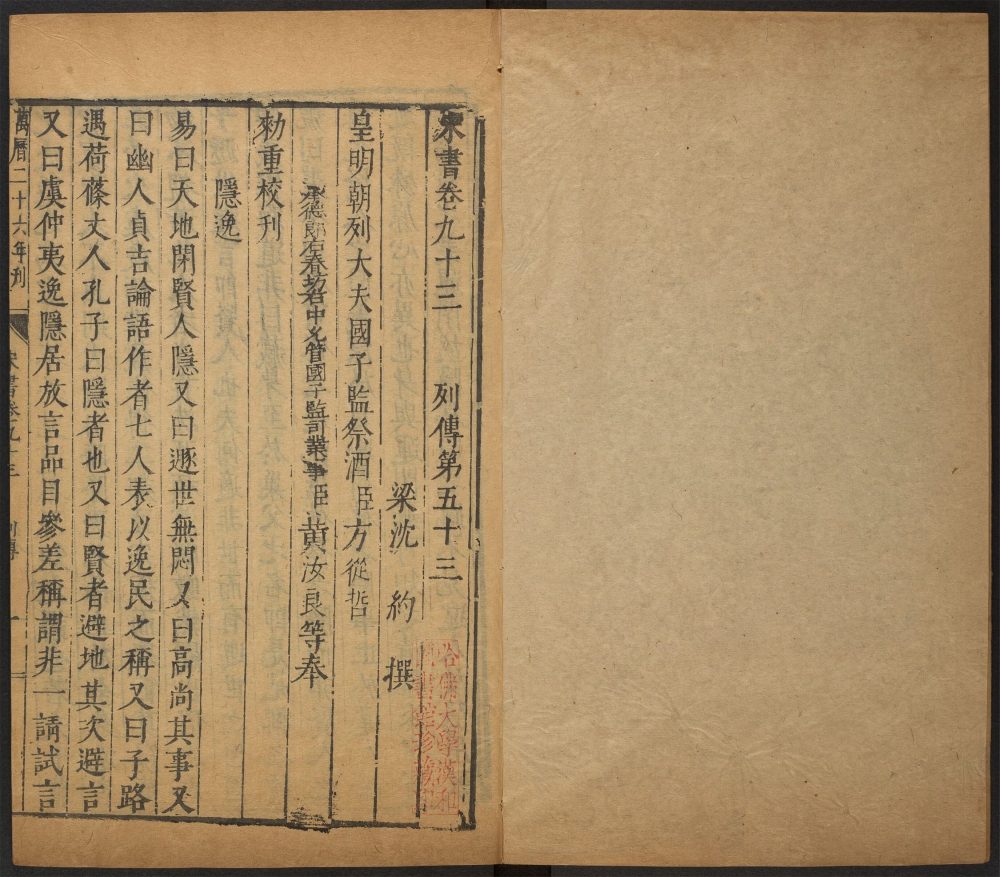 宋書卷九十三 列傳第五十三
梁沈 約 撰
皇明朝列大夫國子監祭酒臣方從哲
承德郎右春坊右中允管國子監司業事臣黃汝良等奉
勑重校刊
隱逸
易曰天地閉賢人隱又曰遯世無悶又曰高尚其事又
曰幽人貞吉論語作者七人表以逸民之稱又曰子路
遇荷蓧丈人孔子曰隱者也又曰賢者避地其次避言
又曰虞仲夷逸隱居放言品目參差稱謂非一請試言
萬曆二十六年刊 宋書卷九十三 列傳 一
哈佛大學漢和
圖書館珍藏印